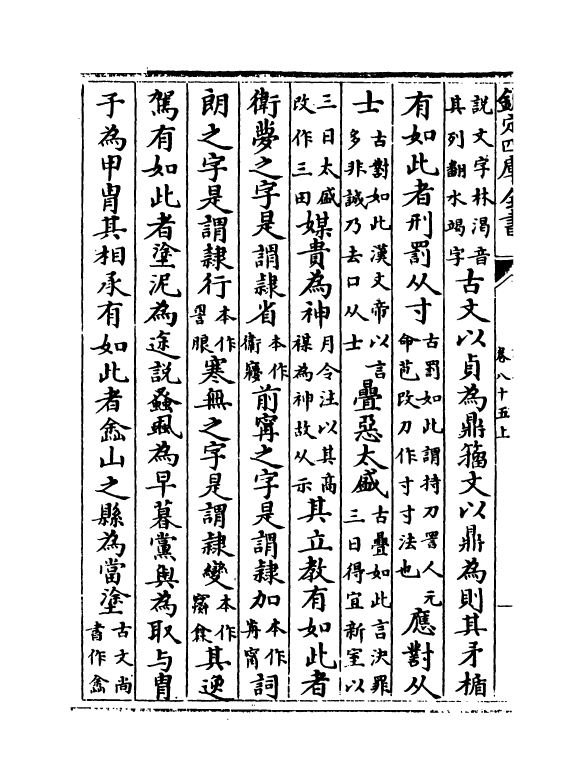 欽定四庫全書 卷八十五上
說文字林渴音
其列翻水竭字
古文以貞為鼎籀文以鼎為則其矛楯
有如此者刑罰从寸
古罰如此謂持刀詈人元
命苞改刀作寸寸法也
應對从
士
古對如此漢文帝以言
多非誠乃去口从士
疊惡太盛
古疊如此言決罪
三日得宜新室以
三日太盛
改作三田
媒貴為神
月令注以其高
禖為神故从示
其立教有如此者
衛夢之字是謂隸省
本作
衞㝱
前寧之字是謂隸加
本作
歬寍
詞
朗之字是謂隸行
本作
朖
寒無之字是謂隸變
本作
其逕
駕有如此者塗泥為途說蚤虱為早暮黨與為取与胄
子為甲冑其相承有如此者嵞山之縣為當塗
古文尚
書作嵞